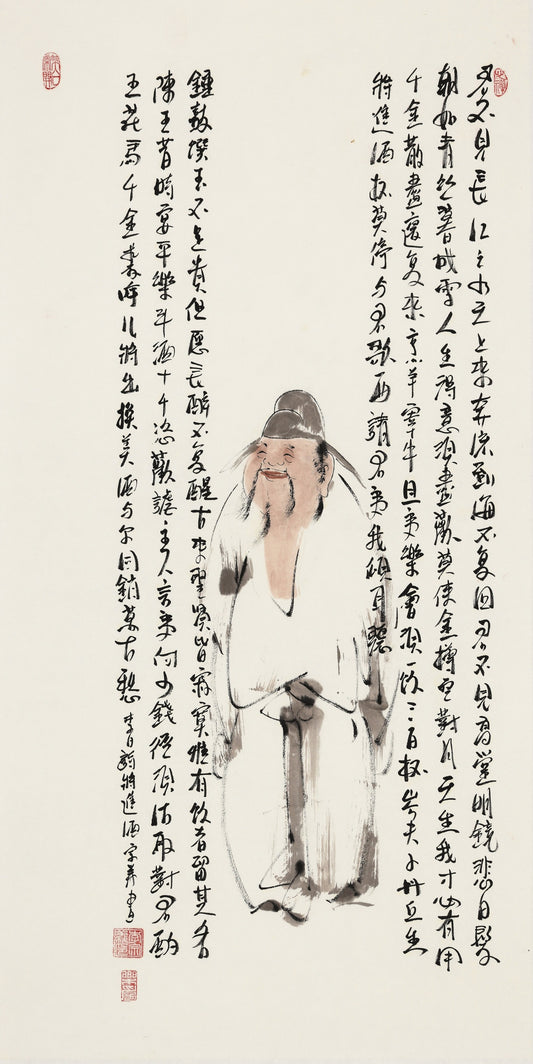 君不見長江之水天上来奔流到海不复回君不見高堂明鏡悲白髮
朝如青丝暮成雪人生得意须盡歡莫使金樽空對月天生我才必有用
千金散盡還复来烹羊宰牛且为樂會须一饮三百杯岑夫子丹丘生
将進酒杯莫停与君歌一曲請君为我傾耳聽
鐘鼓馔玉不足貴但愿長醉不复醒古来聖贤皆寂寞惟有饮者留其名
陳王昔時宴平樂斗酒十千恣歡謔主人言为何少錢径须沽取對君酌
五花馬千金裘呼儿將出换美酒与尔同銷萬古愁 李白詩將進酒